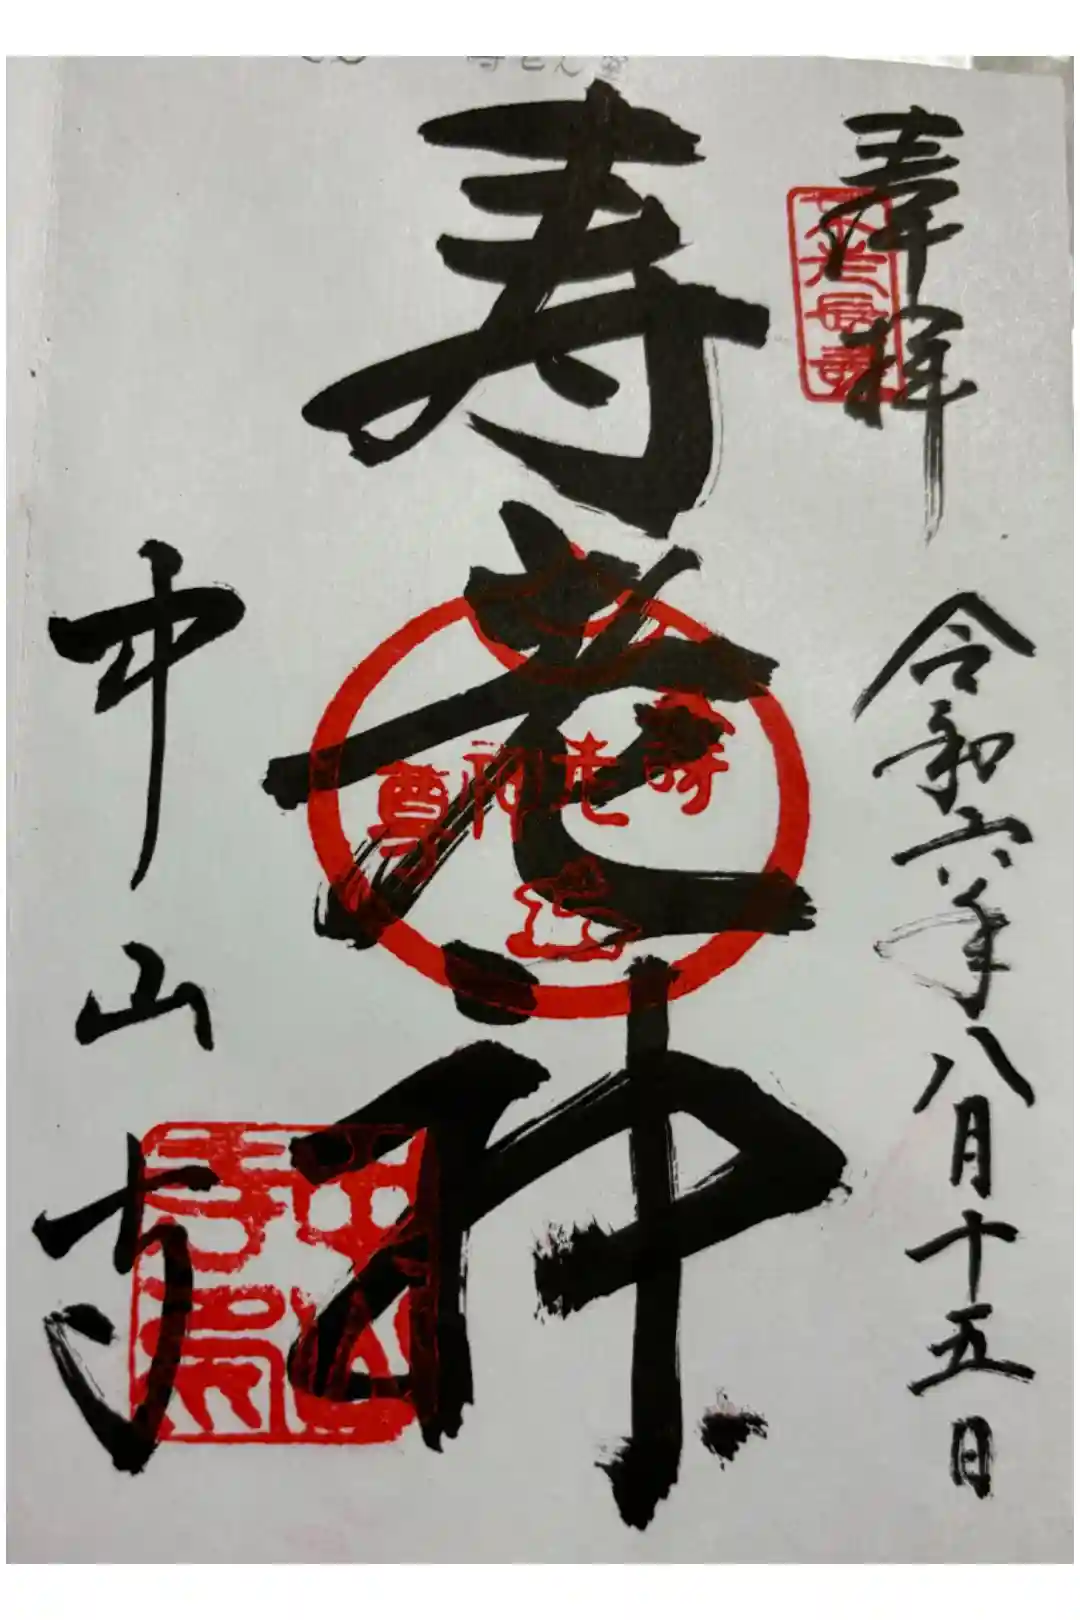 奉拝
不老長寿
令和六年八月十五日
寿老神
寿老神尊
中山寺
中山寺印